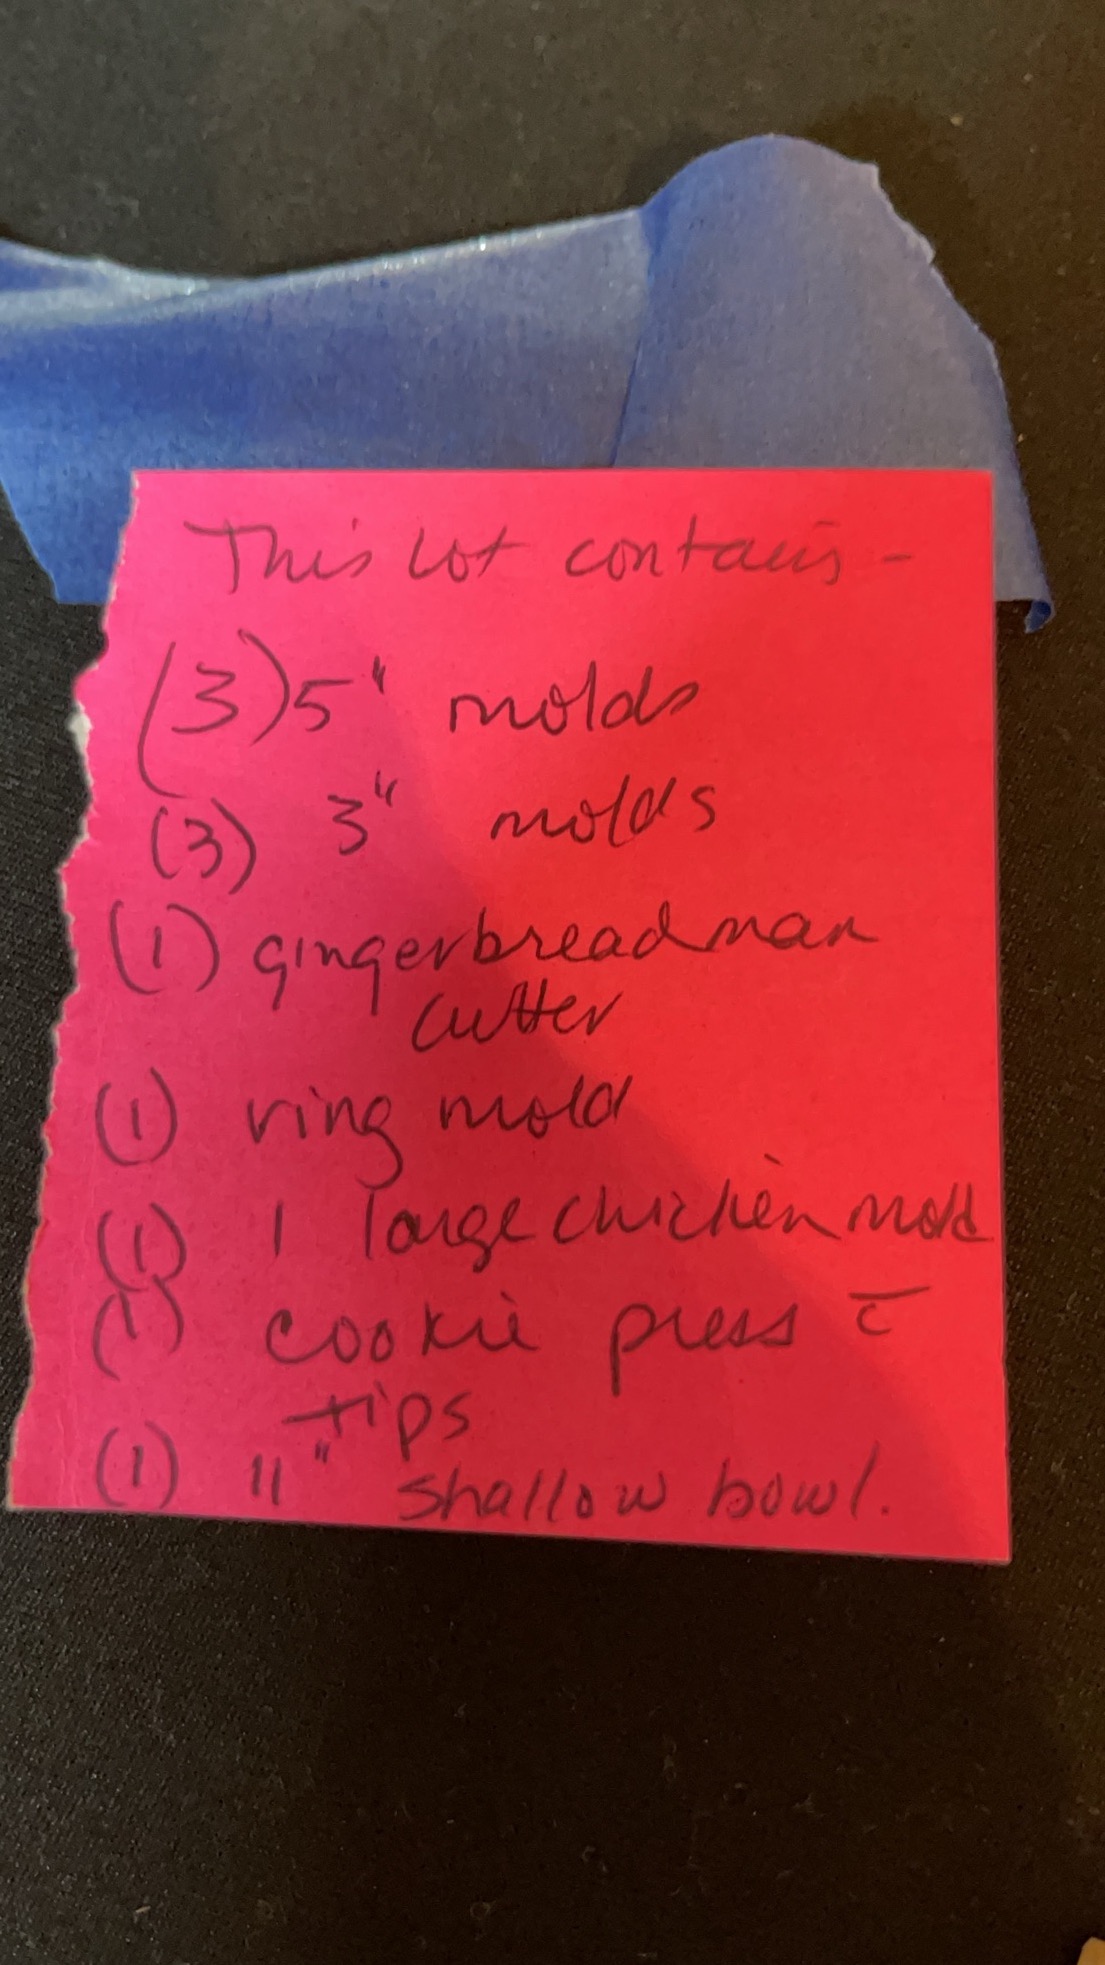 This lot contains -
(3) 5" molds
(3) 3" molds
(1) gingerbreadman
cutter
(1) ring mold
(1) 1 large chicken mold
(1) cookie press c̄
tips
(1) 11" shallow bowl.